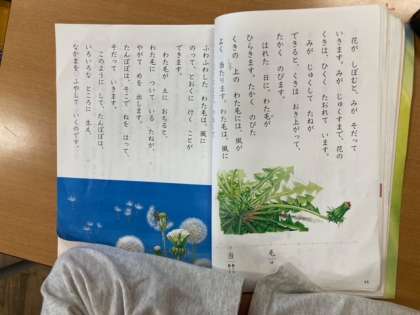 花が しぼむと、みが そだって
いきます。みが じゅくすまで、花の
くきは、ひくく たおれて います。
みが じゅくして たねが
できると、くきは おき上がって、
たかく のびます。
はれた 日に、わた毛が
ひらきます。たかく のびた
くきの 上の わた毛には、風が
よく 当たります。わた毛は、風に
ふわふわした わた毛は、風に
のって、とおくに 行く ことが
できます。
わた毛が 土に おちると、
わた毛に ついて いる たねが、
やがて めを 出します。
たんぽぽは、そだって いきます。
このように して、たんぽぽは、
いろいろな ところに 生え、
なかまを ふやして いくのです。
毛
当